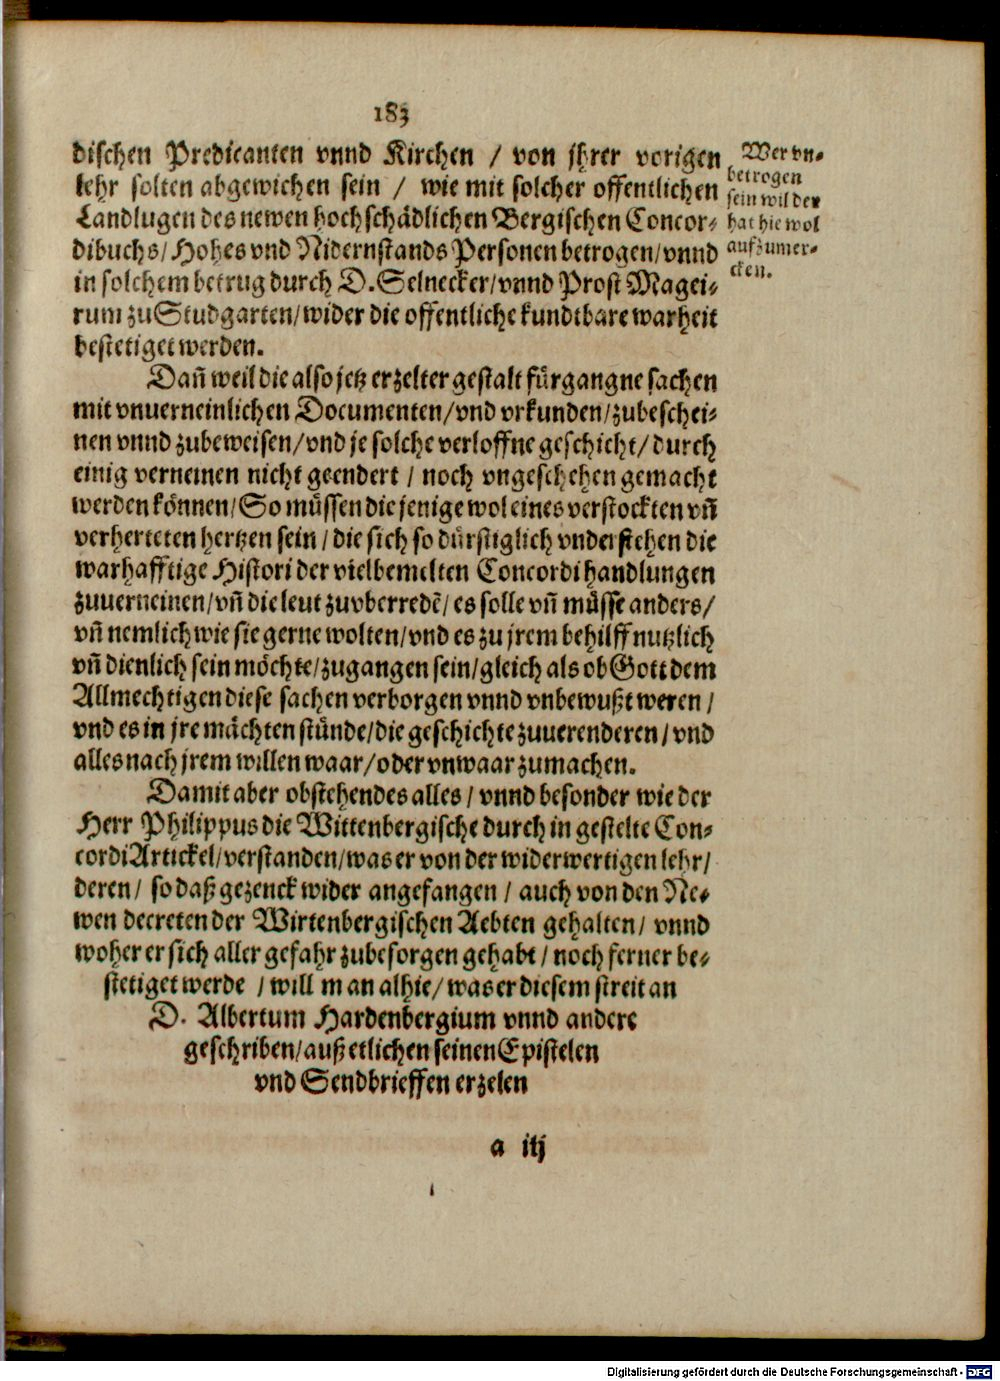 183
dischen Predicanten vnnd Kirchen / von jhrer vorigen
lehr solten abgewichen sein / wie mit solcher offentlichen
Landlugen des newen hochschädlichen Bergischen Concor-
dibuchs / Hohes vnd Nidernstands Personen betrogen / vnnd
in solchem betrug durch D. Selnecker / vnnd Prost Magei-
rum zu Studgarten / wider die offentliche kundtbare warheit
bestetiget werden.
Wer vn-
betrogen
sein wil der
hat hie wol
aufzumer-
cken.
Dañ weil die also jetz erzelter gestalt fürgangne sachen
mit vnuerneinlichen Documenten / vnd vrkunden / zubeschei-
nen vnnd zubeweisen / vnd je solche verloffne geschicht / durch
einig verneinen nicht geendert / noch vngeschehen gemacht
werden können / So müssen die jenige wol eines verstockten vñ
verherteten hertzen sein / die sich so dürstiglich vnderstehen die
warhafftige Histori der vielbemelten Concordi handlungen
zuuerneinen / vñ die leut zuvberredẽ / es solle vñ müsse anders /
vñ nemlich wie sie gerne wolten / vnd es zu jrem behilff nutzlich
vñ dienlich sein möchte / zugangen sein / gleich als ob Gott dem
Allmechtigen diese sachen verborgen vnnd vnbewußt weren /
vnd es in jre mächten stünde / die geschichte zuuerenderen / vnd
alles nach jrem willen waar / oder vnwaar zumachen.
Damit aber obstehendes alles / vnnd besonder wie der
Herr Philippus die Wittenbergische durch in gestelte Con-
cordi Artickel / verstanden / was er von der widerwertigen lehr /
deren / so daß gezenck wider angefangen / auch von den Ne-
wen decreten der Wirtenbergischen Aebten gehalten / vnnd
woher er sich aller gefahr zubesorgen gehabt / noch ferner be-
stetiget werde / will man alhie / was er diesem streit an
D. Albertum Hardenbergium vnnd andere
geschriben / auß etlichen seinen Epistelen
vnd Sendbrieffen erzelen
a iij
Digitalisierung gefördert durch die Deutsche Forschungsgemeinschaft - DFG